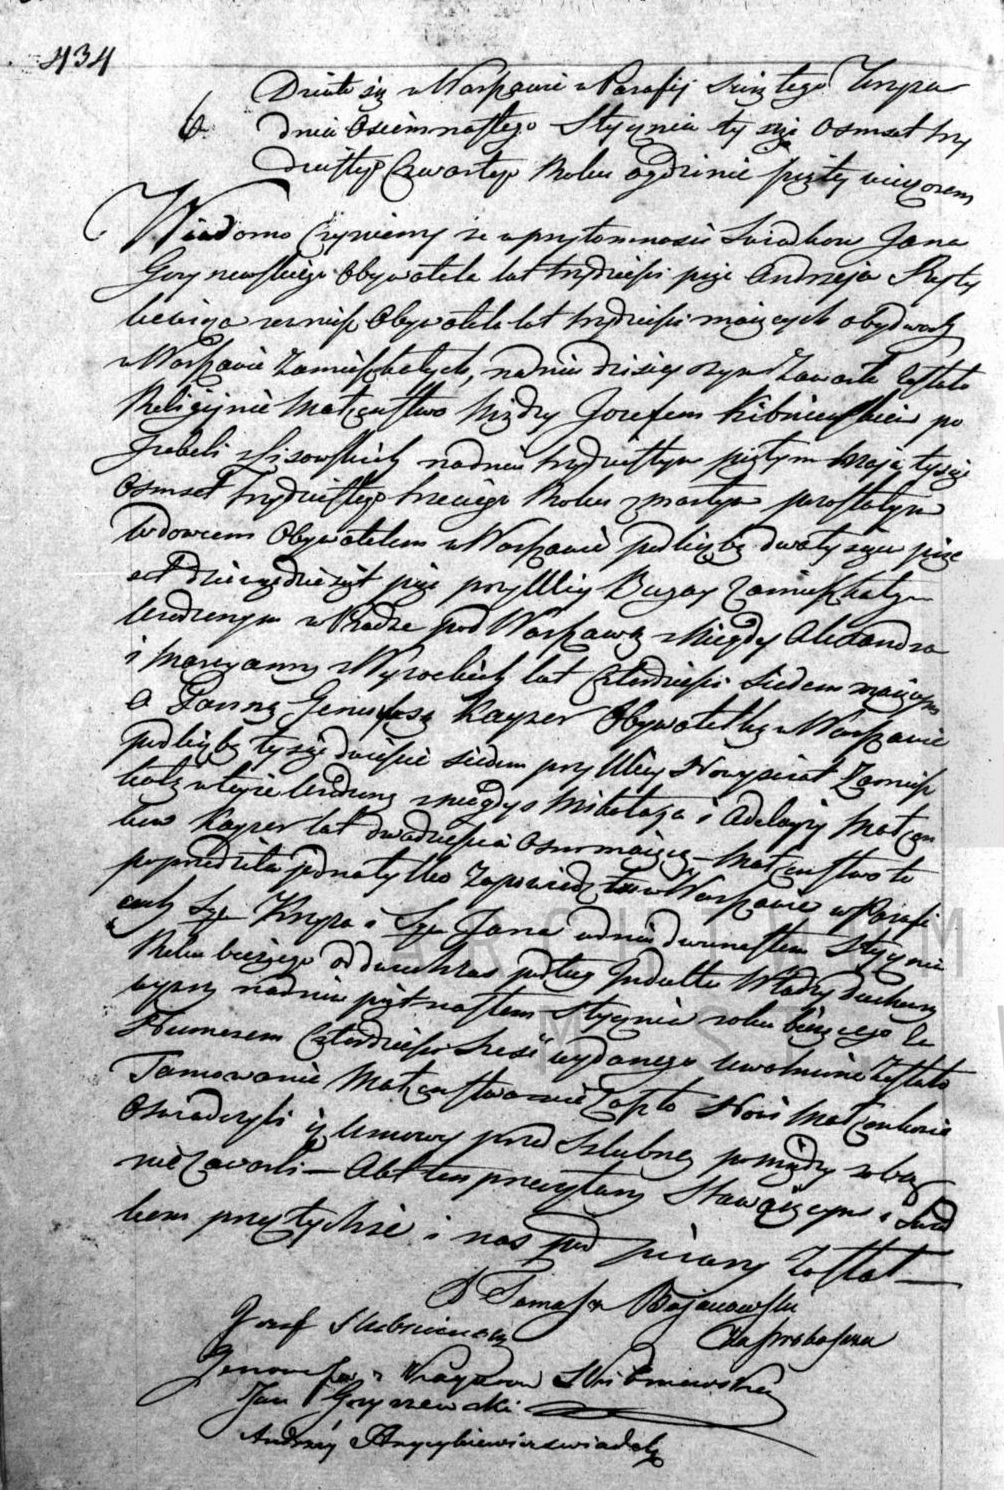 434
6
Działo się w Warszawie w Parafii Świętego Krzyża
dnia Osiemnastego Stycznia tysiąc osmset trzy
dziestego Czwartego Roku o godzinie piątey wieczorem
Wiadomo Czyniemy że w przytomności Świadków Jana
Gorynewskiego Obywatela lat trzydzieści pięć Andrzeja
Obywatela lat trzydzieści maiących obydwoch
w Warszawie Zamieszkałych, na dniu dzisieyszym Zawarte Zostało
Religijnie Małżeństwo między Jozefem Skibniewskim po
Izabeli z Lisowskich na dniu trzydziestym piątym Maja tysiąc
Osmset Trzydziestego trzeciego Roku zmarłej pozostałym
Wdowcem Obywatelem w Warszawie pod liczbą dwa tysiące pięć
set dziewięćdziesiąt pięć przy Ulicy Bugay zamieszkałym
Urodzonym w Pradze pod Warszawą z Niegdy Alexandra
i Maryanny z Wysockich lat Czterdzieści Siedem maiącym
a Panną Genowefą Kayzer Obywatelką w Warszawie
pod liczbą tysiąc dwieście siedem przy Ulicy Nowy Świat Zamiesz
kałą w teyże Urodzoną z niegdyś Mikołaja i Adelajdy Małżon
ków Kayzer lat dwadzieścia Osm maiącą — Małżeństwo to
poprzedziła jedna tylko Zapowiedź w Warszawie w Parafi
ach Sgo Krzyża i Sgo Jana w dniu dwunastem Stycznia
Roku bieżącego od dwóch zaś podług Indultu Władzy duchow
ney na dniu piętnastem Stycznia roku bieżącego Za
Numerem Czterdzieści Sześć wydanego uwolnienie Zostało
Tamowanie Małżeństwa nie Zaszło Nowi Małżonkowie
Oświadczyli iż Umowy przed Szlubney pomiędzy sobą
nie Zawarli — Akt ten przeczytany Stawaiącym i Świad
kom przez tychże i nas pod pisany Został —
X Tomasz Bojanowski
Za Proboszcza
Jozef Skibniewski
Genowefa z Kayzerow Skibniewska
Jan Gorynewski
Andrzey świadek